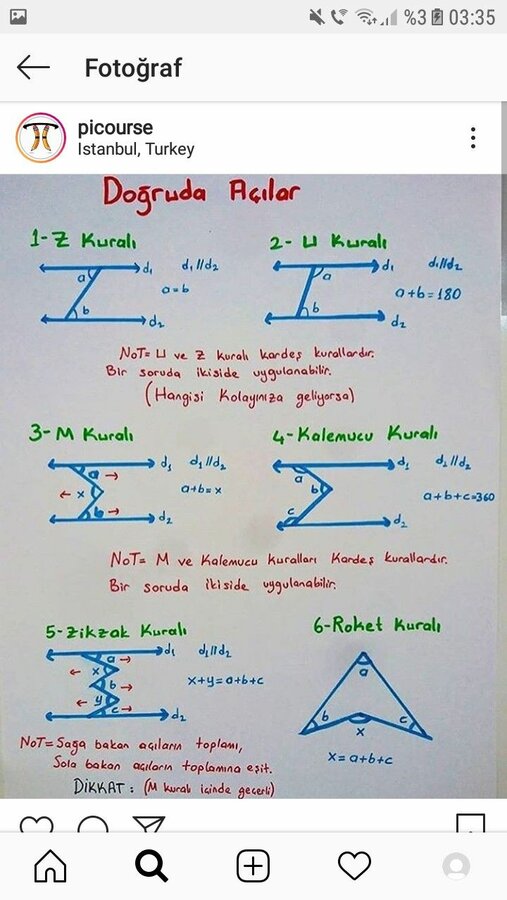 %3 03:35
Fotoğraf
picourse
Istanbul, Turkey
Doğruda Açılar
1-Z Kuralı
d₁ d₁//d₂
a
a=b
b
d₂
2- U Kuralı
d₁ d₁//d₂
a
a+b=180
b
d₂
NOT= U ve Z kuralı kardeş kurallardır.
Bir soruda ikiside uygulanabilir.
(Hangisi Kolayınıza geliyorsa)
3-M Kuralı
d₁ d₁//d₂
a
x a+b=x
b
d₂
4-Kalemucu Kuralı
d₁ d₁//d₂
a
b a+b+c=360
c
d₂
NOT= M ve Kalemucu kuralları Kardeş kurallardır.
Bir soruda ikiside uygulanabilir.
5-Zikzak Kuralı
d₁ d₁//d₂
a
x
b x+y=a+b+c
y
c
d₂
6-Roket Kuralı
a
b c
x
x=a+b+c
NOT=Sağa bakan açıların toplamı,
Sola bakan açıların toplamına eşit.
DİKKAT: (M kuralı içinde geçerli)